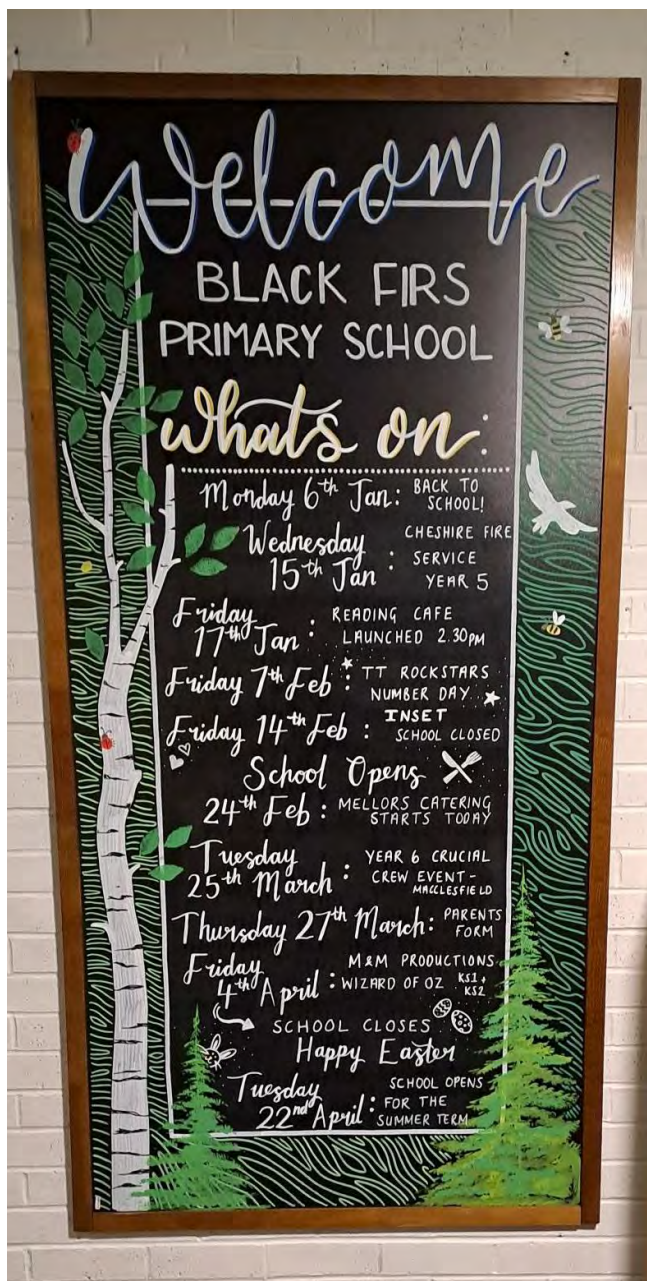 Welcome
BLACK FIRS
PRIMARY SCHOOL
whats on:
Monday 6th Jan: BACK TO SCHOOL!
Wednesday 15th Jan: CHESHIRE FIRE SERVICE YEAR 5
Friday 17th Jan: READING CAFE LAUNCHED 2.30PM
Friday 7th Feb: TT ROCKSTARS NUMBER DAY
Friday 14th Feb: INSET SCHOOL CLOSED
School Opens
24th Feb: MELLORS CATERING STARTS TODAY
Tuesday 25th March: YEAR 6 CRUCIAL CREW EVENT - MACCLESFIELD
Thursday 27th March: PARENTS FORM
Friday 4th April: M&M PRODUCTIONS WIZARD OF OZ KS1 + KS2
SCHOOL CLOSES
Happy Easter
Tuesday 22nd April: SCHOOL OPENS FOR THE SUMMER TERM